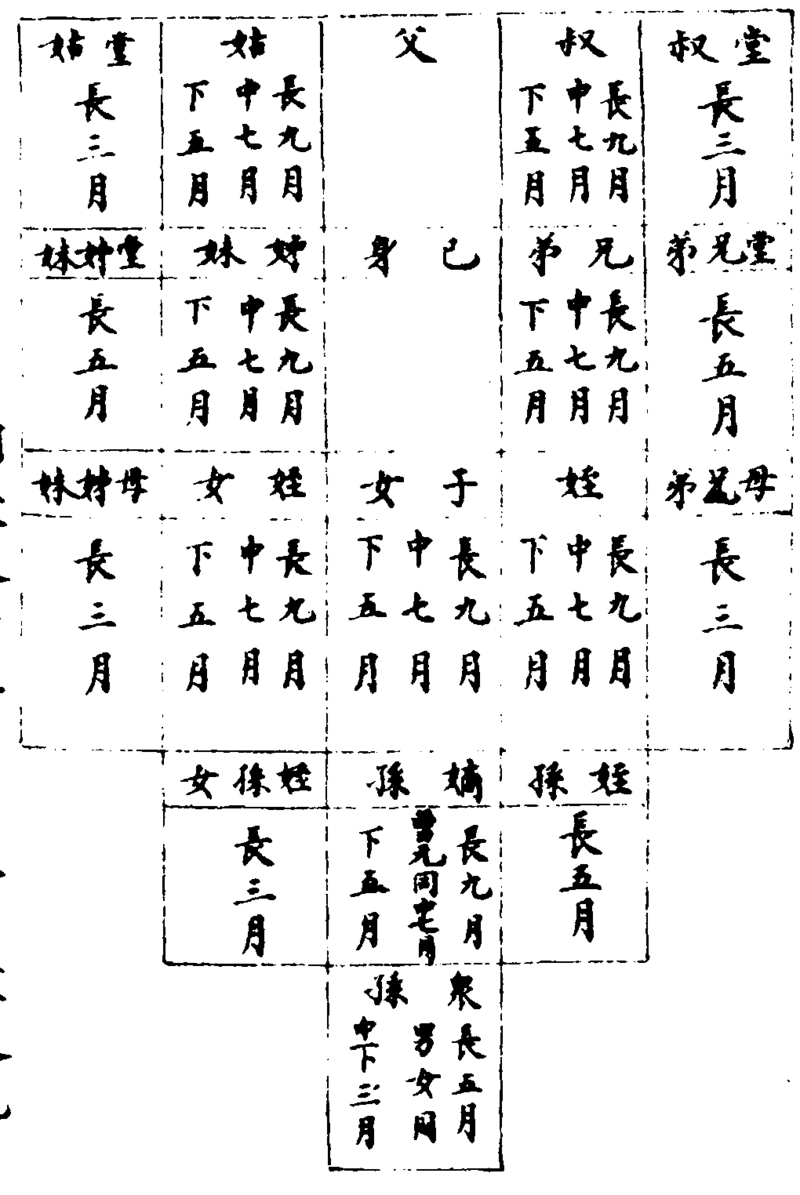 堂叔
長三月
叔
長九月
中七月
下五月
父
姑
長九月
中七月
下五月
堂姑
長三月
堂兄弟
長五月
兄弟
長九月
中七月
下五月
己身
姊妹
長九月
中七月
下五月
堂姊妹
長五月
母弟
長三月
姪
長九月
中七月
下五月
子女
長九月
中七月
下五月
姪女
長九月
中七月
下五月
母姊妹
長三月
姪孫
長五月
嫡孫
長九月
曾元同中七月
下五月
姪孫女
長三月
眾孫
長五月
男女同
中下三月